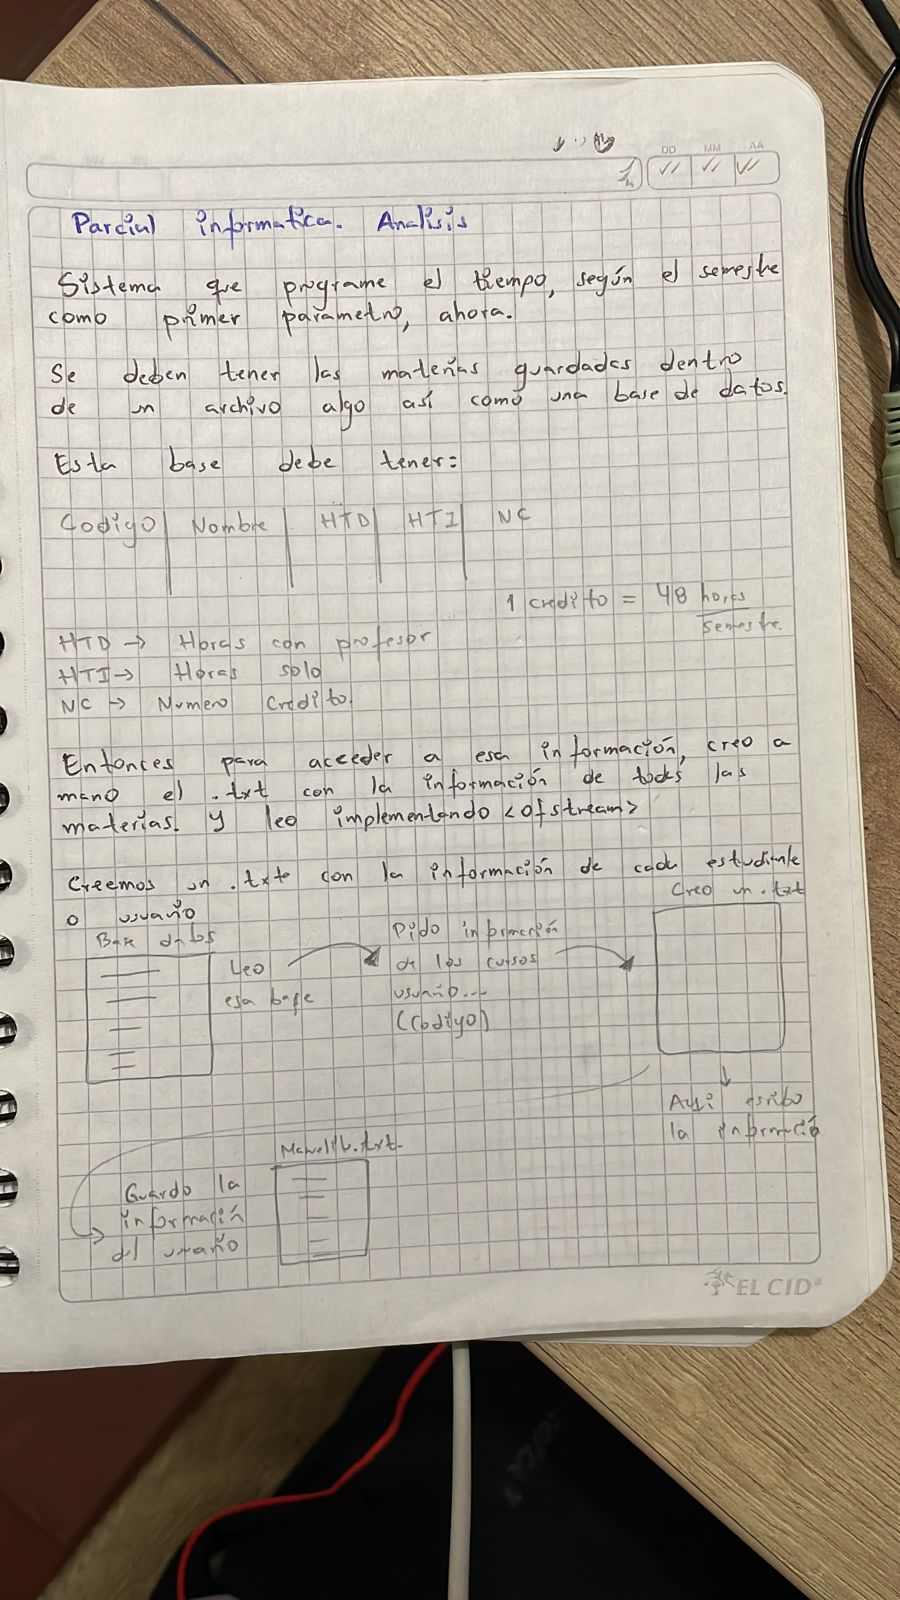 DD MM AA
Parcial informatica. Analisis
Sistema que programe el tiempo, según el semestre
como primer parametro, ahora.
Se deben tener las materias guardadas dentro
de un archivo algo así como una base de datos.
Esta base debe tener:
Codigo | Nombre | HTD | HTI | NC
1 credito = 48 horas
semestre.
HTD → Horas con profesor
HTI → Horas solo
NC → Numero Credito.
Entonces para acceder a esa información, creo a
mano el .txt con la información de todas las
materias. y leo implementando <ofstream>
Creemos un .txt con la información de cada estudiante
o usuario
Creo un .txt
Base datos
Leo
esa base
Pido información
de los cursos
usuario...
(Codigo)
Aqui escribo
la informació
Guardo la
información
del usuario
EL CID